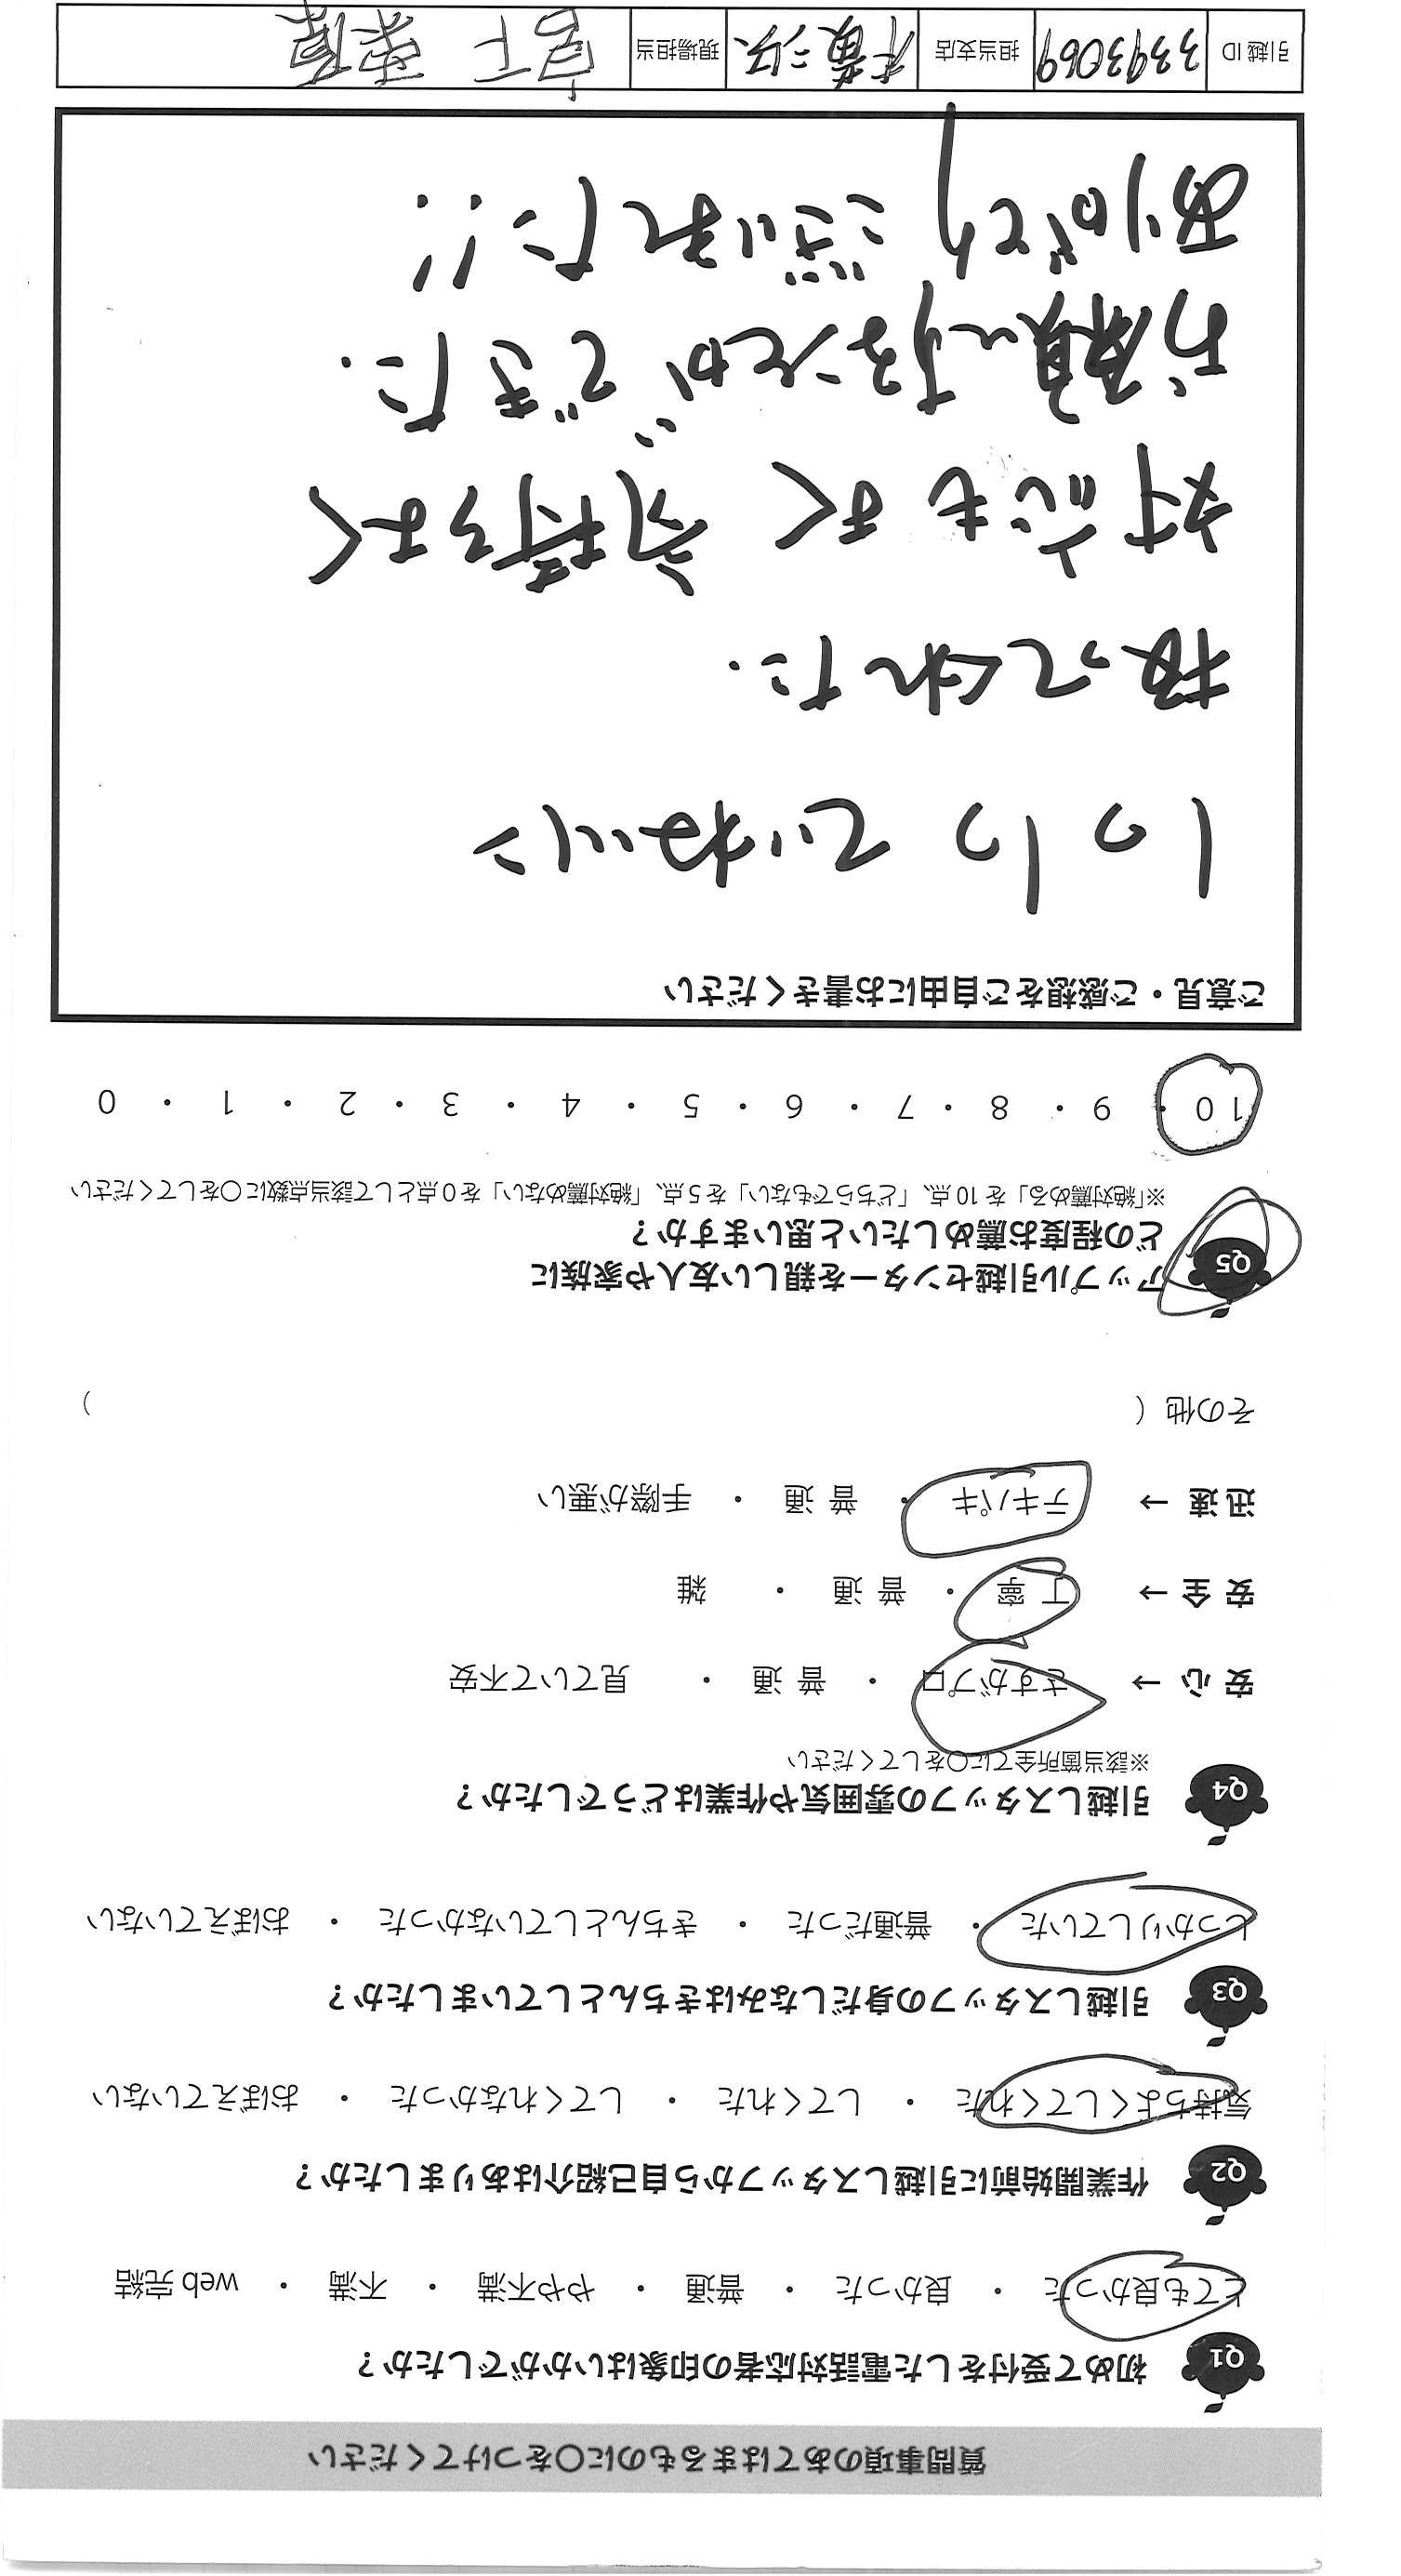 質問事項のあてはまるものに○をつけてください
Q1 初めて受付をした電話対応者の印象はいかがでしたか？
とても良かった ・ 良かった ・ 普通 ・ やや不満 ・ 不満 ・ web 完結
Q2 作業開始前に引越しスタッフから自己紹介はありましたか？
気持ちよくしてくれた ・ してくれた ・ してくれなかった ・ おぼえていない
Q3 引越しスタッフの身だしなみはきちんとしていましたか？
しっかりしていた ・ 普通だった ・ きちんとしていなかった ・ おぼえていない
Q4 引越しスタッフの雰囲気や作業はどうでしたか？
※該当箇所全てに○をしてください
安 心 → さすがプロ ・ 普 通 ・ 見ていて不安
安 全 → 丁 寧 ・ 普 通 ・ 雑
迅 速 → テキパキ ・ 普 通 ・ 手際が悪い
その他（ ）
Q5 アップル引越センターを親しい友人や家族に
どの程度お薦めしたいと思いますか？
※「絶対薦める」を 10 点、「どちらでもない」を 5 点、「絶対薦めない」を 0 点として該当点数に○をしてください
10 ・ 9 ・ 8 ・ 7 ・ 6 ・ 5 ・ 4 ・ 3 ・ 2 ・ 1 ・ 0
ご意見・ご感想をご自由にお書きください
1つ1つ ていねいに
扱ってくれた.
対応もよく 気持ちよく
お願いすることができた.
ありがとうございました!!
引越 ID 3393069 担当支店 現場担当 宮下